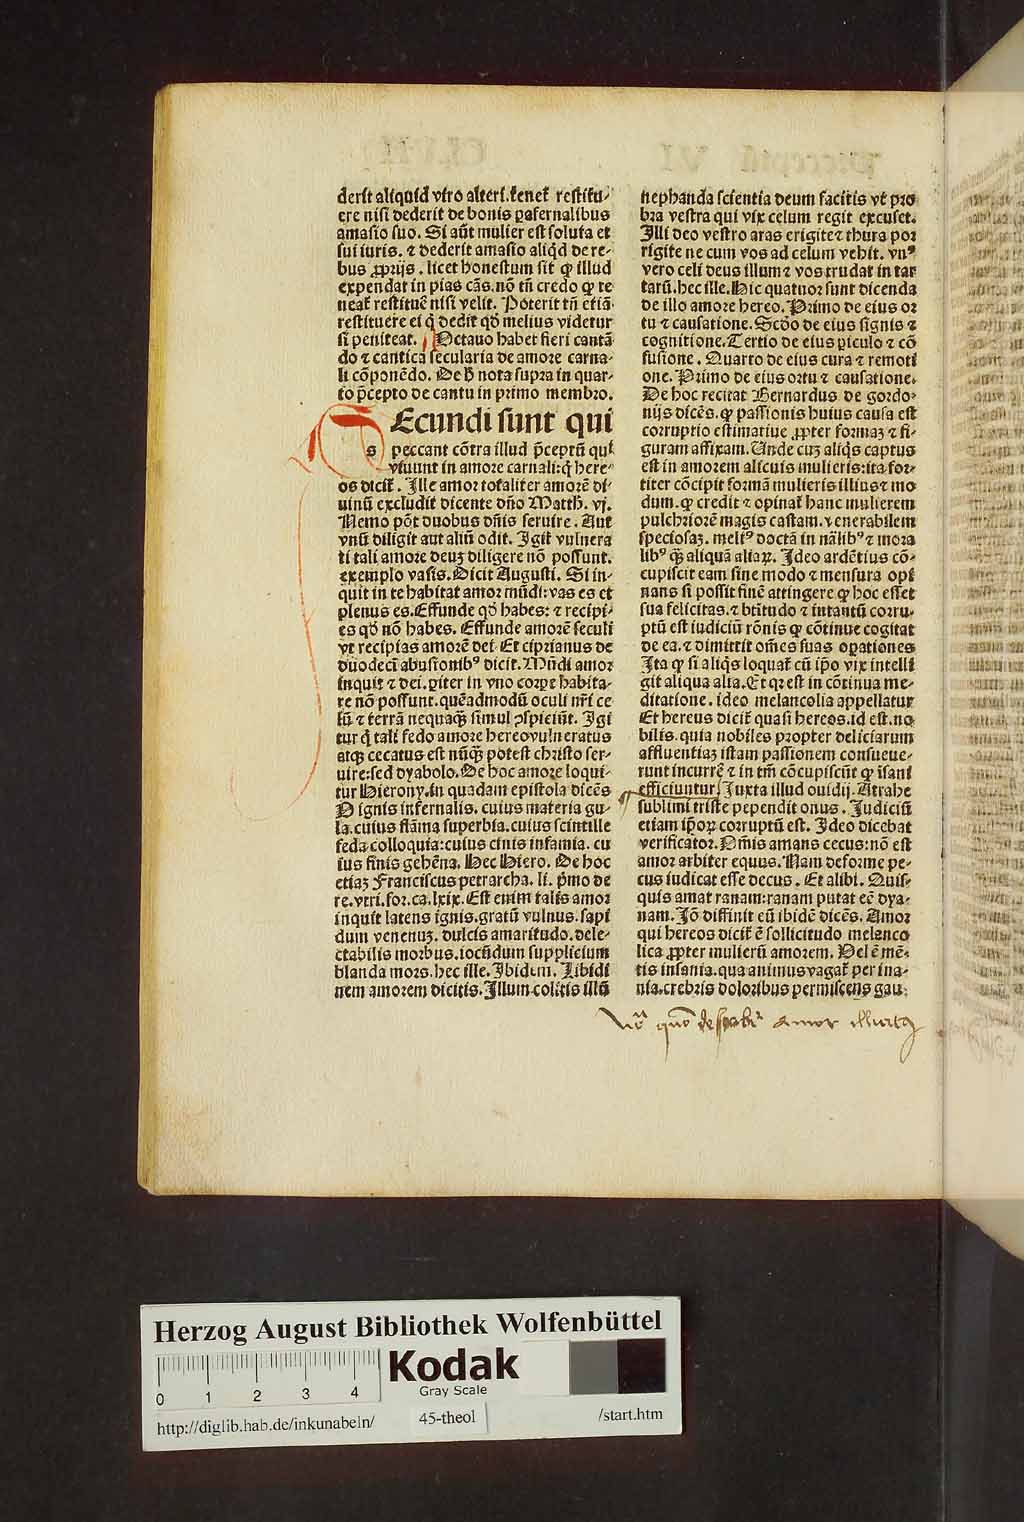 derit aliquid viro alteri. tenet᷑ restitu-
ere nisi dederit de bonis ꝑafernalibus
amasio suo. Si aūt mulier est soluta et
sui iuris. ⁊ dederit amasio aliqd̄ de re-
bus ꝓprijs. licet honestum sit ꝙ illud
expendat in pias cās. nō tn̄ credo ꝙ te
neat᷑ restituē nisi velit. Poterit tn̄ etiā
restituere ei q̄ dedit qd̄ melius videtur
si peniteat. Octauo habet fieri cantā
do ⁊ cantica secularia de amore carna-
li cōponēdo. De h̄ nota supra in quar-
to p̄cepto de cantu in primo membro.
Ecundi sunt qui
s peccant cōtra illud p̄ceptū qui
viuunt in amore carnali: q̄ here-
os dicit᷑. Ille amor totaliter amorē di-
uinū excludit dicente dn̄o Matth. vj.
Nemo pōt duobus dn̄is seruire. Aut
vnū diligit aut aliū odit. Igit᷑ vulnera
ti tali amore deuꝫ diligere nō possunt.
exemplo vasis. Dicit Augusti. Si in-
quit in te habitat amor mūdi: vas es et
plenus es. Effunde qd̄ habes: ⁊ recipi-
es qd̄ nō habes. Effunde amorē seculi
vt recipias amorē dei. Et ciprianus de
duodecī abusionibꝰ dicit. Mūdi amor
inquit ⁊ dei. ꝑiter in vno corꝑe habita-
re nō possunt. quēadmodū oculi nr̄i ce
lū ⁊ terrā nequaqꝫ simul ↄspiciūt. Igi
tur q̄ tali fedo amore hereo vulneratus
atqꝫ cecatus est nūqꝫ potest christo ser-
uire: sed dyabolo. De hoc amore loqui-
tur Hierony. in quadam epistola dicēs
O ignis infernalis. cuius materia gu-
la. cuius flāma superbia. cuius scintille
feda colloquia: cuius cinis infamia. cu
ius finis gehēna. Hec Hiero. De hoc
etiaꝫ Franciscus petrarcha. li. p̄mo de
re. vtri. for. ca. lxix. Est enim talis amor
inquit latens ignis. gratū vulnus. sapi
dum venenuꝫ. dulcis amaritudo. dele-
ctabilis morbus. iocūdum supplicium
blanda mors. hec ille. Ibidem. Libidi
nem amorem dicitis. Illum colitis illū
nephanda scientia deum facitis vt pro
bra vestra qui vix celum regit excuset.
Illi deo vestro aras erigite ⁊ thura por
rigite ne cum vos ad celum vehit. vnꝰ
vero celi deus illum ⁊ vos trudat in tar
tarū. hec ille. Hic quatuor sunt dicenda
de illo amore hereo. Primo de eius or
tu ⁊ causatione. Scd̄o de eius signis ⁊
cognitione. Tertio de eius ꝑiculo ⁊ cō
fusione. Quarto de eius cura ⁊ remoti
one. Primo de eius ortu ⁊ causatione.
De hoc recitat Bernardus de gordo-
nijs dicēs. ꝙ passionis huius causa est
corruptio estimatiue ꝓpter formaꝫ ⁊ fi-
guram affixam. Unde cuꝫ aliqs̄ captus
est in amorem alicuis mulieris: ita for-
titer cōcipit formā mulieris illius ⁊ mo
dum. ꝙ credit ⁊ opinat᷑ hanc mulierem
pulchriorē magis castam. venerabilem
speciosaꝫ. meliꝰ doctā in nālibꝰ ⁊ mora
libꝰ qꝫ aliquā aliaꝝ. Ideo ardētius cō-
cupiscit eam sine modo ⁊ mensura opi
nans si possit finē attingere ꝙ hoc esset
sua felicitas. ⁊ bt̄itudo ⁊ intantū corru-
ptū est iudiciū rōnis ꝙ cōtinue cogitat
de ea. ⁊ dimittit om̄es suas oꝑationes
Ita ꝙ si aliqs̄ loquat᷑ cū ip̄o vix intelli
git aliqua alia. Et qꝛ est in cōtinua me-
ditatione. ideo melancolia appellatur
Et hereus dicit᷑ quasi hereos. id est. no
bilis. quia nobiles propter deliciarum
affluentiaꝫ istam passionem consueue-
runt incurrē ⁊ in tm̄ cōcupiscūt ꝙ īsani
efficiuntur. Iuxta illud ouidij. Atrahe
sublimi triste pependit onus. Iudiciū
etiam ip̄oꝝ corruptū est. Ideo dicebat
verificator. Om̄is amans cecus: nō est
amor arbiter equus. Nam deforme pe-
cus iudicat esse decus. Et alibi. Quis-
quis amat ranam: ranam putat eē dya-
nam. Iō diffinit eū ibidē dicēs. Amor
qui hereos dicit᷑ ē sollicitudo melanco
lica ꝓpter mulierū amorem. Vel ē mē-
tis insania. qua animus vagat᷑ per ina-
nia. crebris doloribus permiscens gau-
amor
Herzog August Bibliothek Wolfenbüttel
0 1 2 3 4
Kodak
Gray Scale
http://diglib.hab.de/inkunabeln/ 45-theol /start.htm